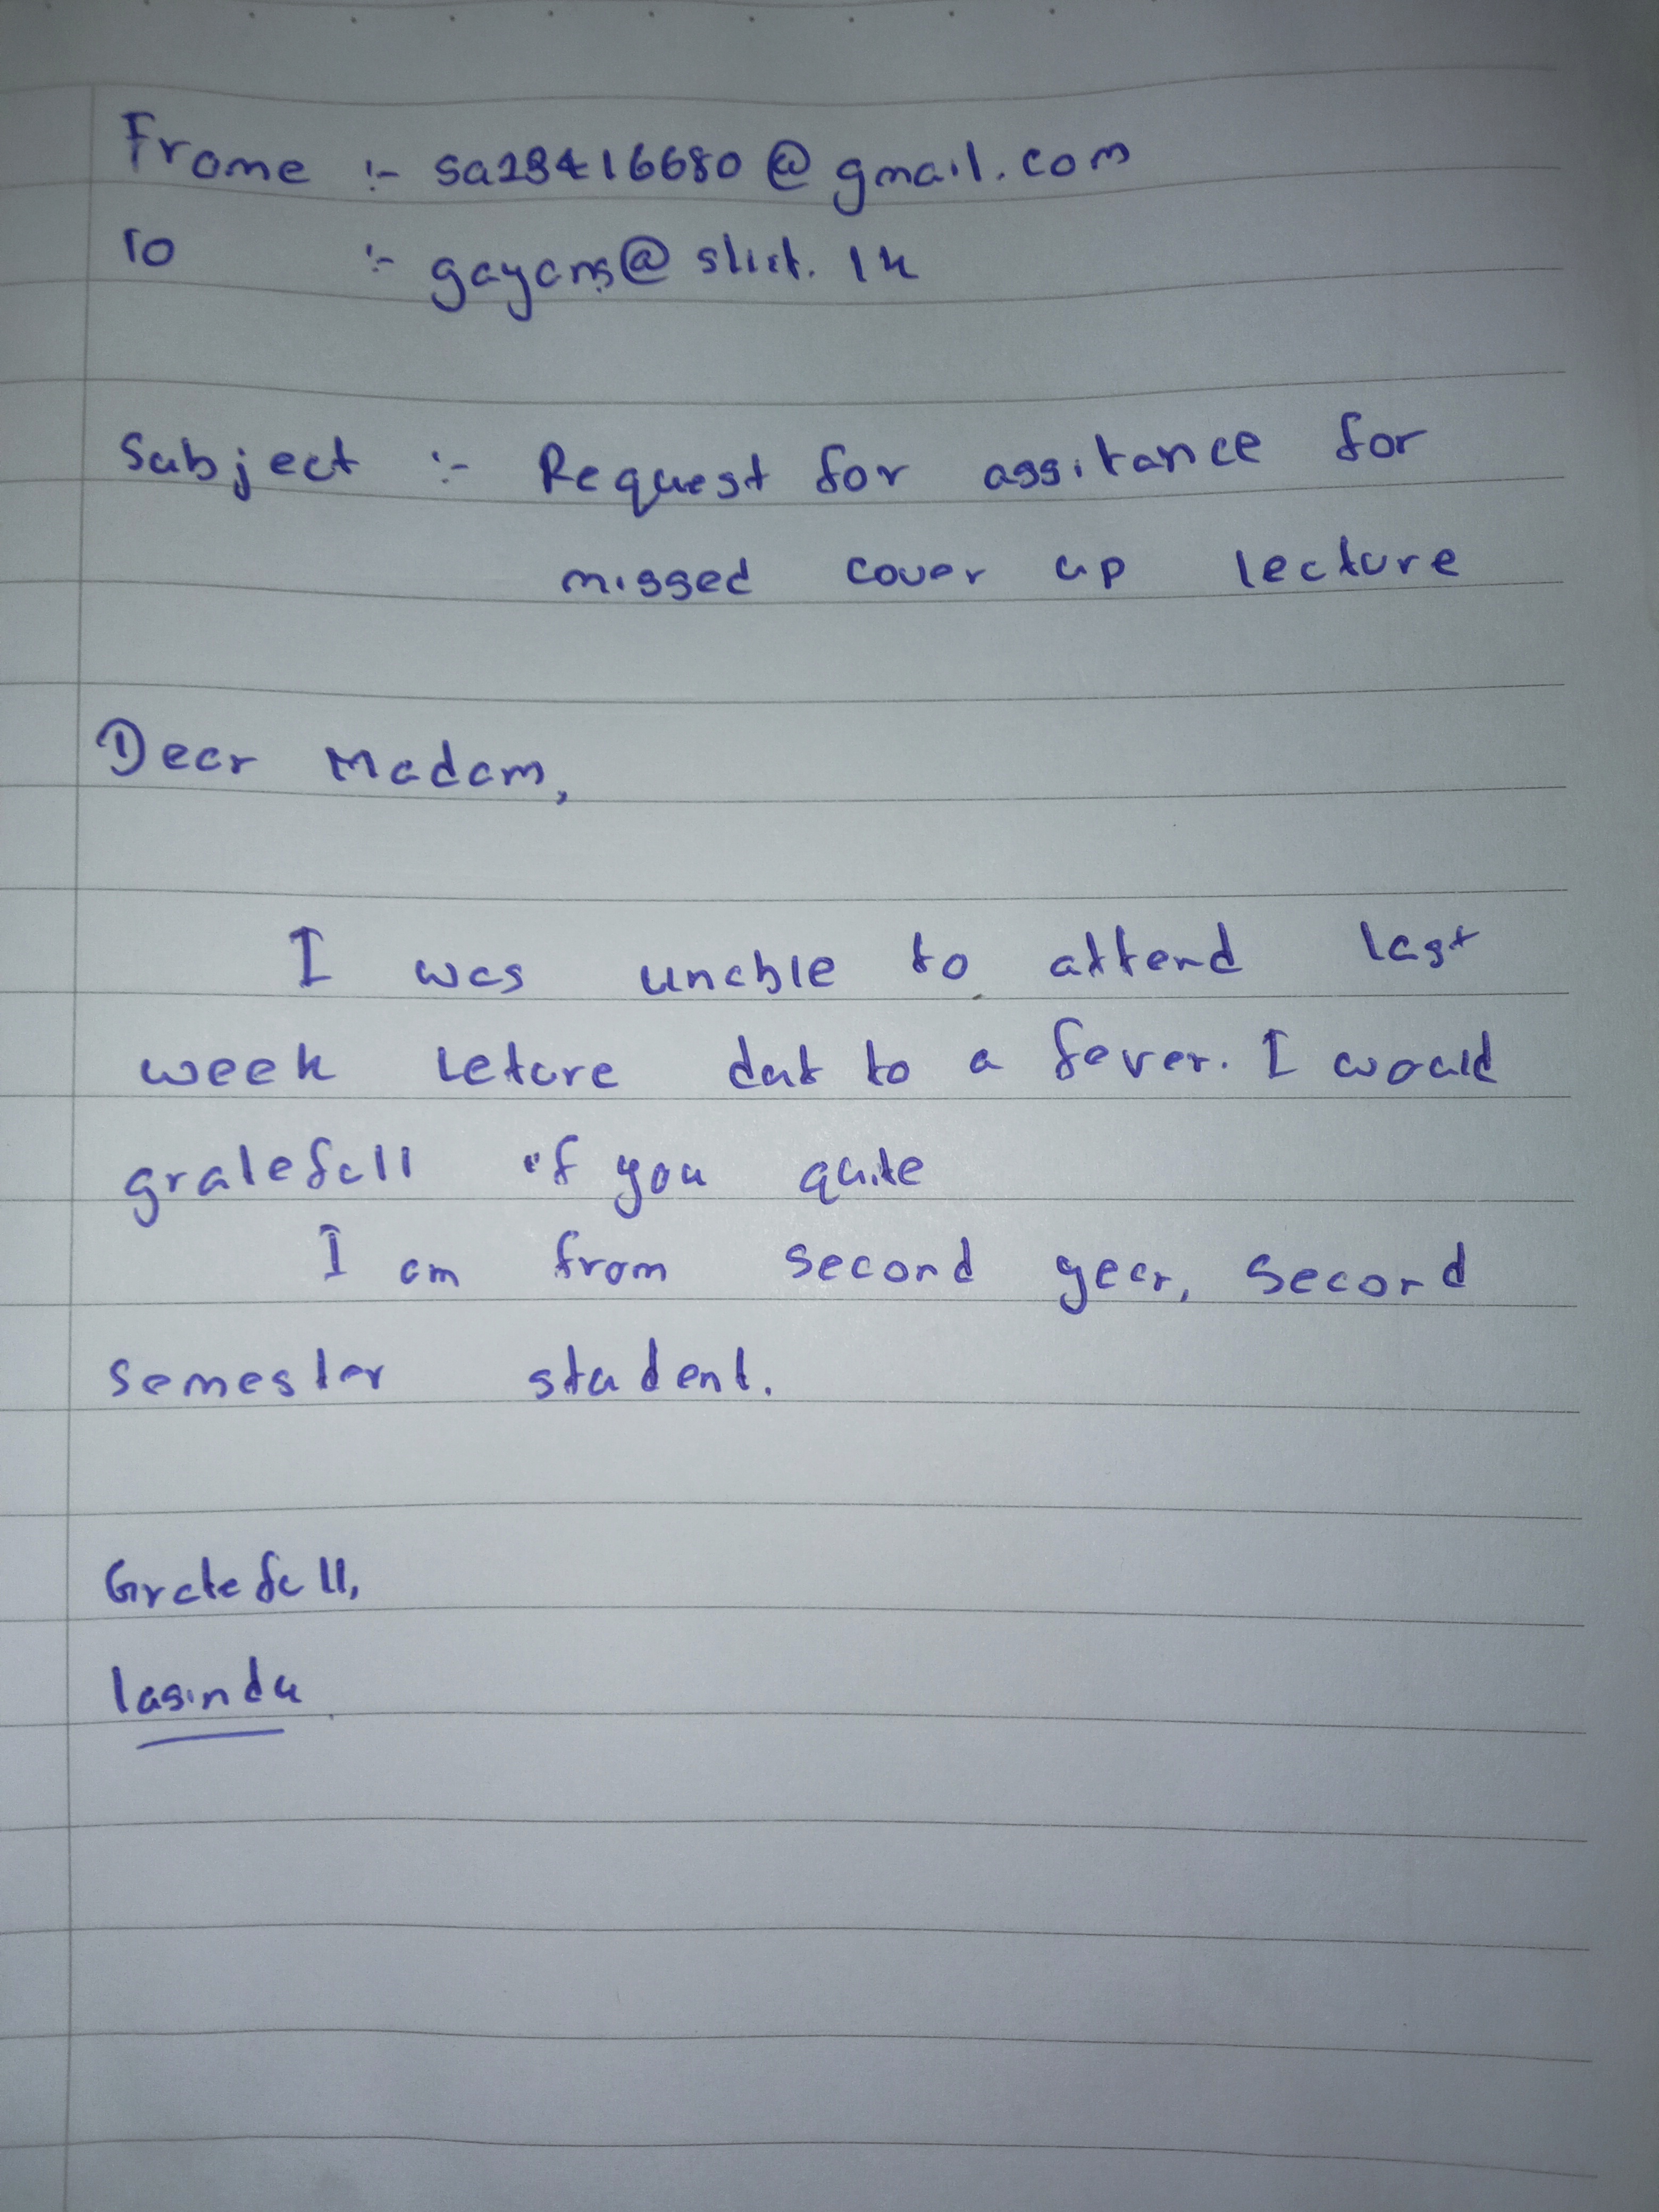 Frome :- sa23416680@gmail.com
To :- gayans@sliit.lk
Subject :- Request for assitance for
missed cover up lecture
Dear Madam,
I was unable to attend last
week leture dut to a fever. I would
gratefull if you quite
I am from second year, second
semester student.
Gratefull,
lasindu